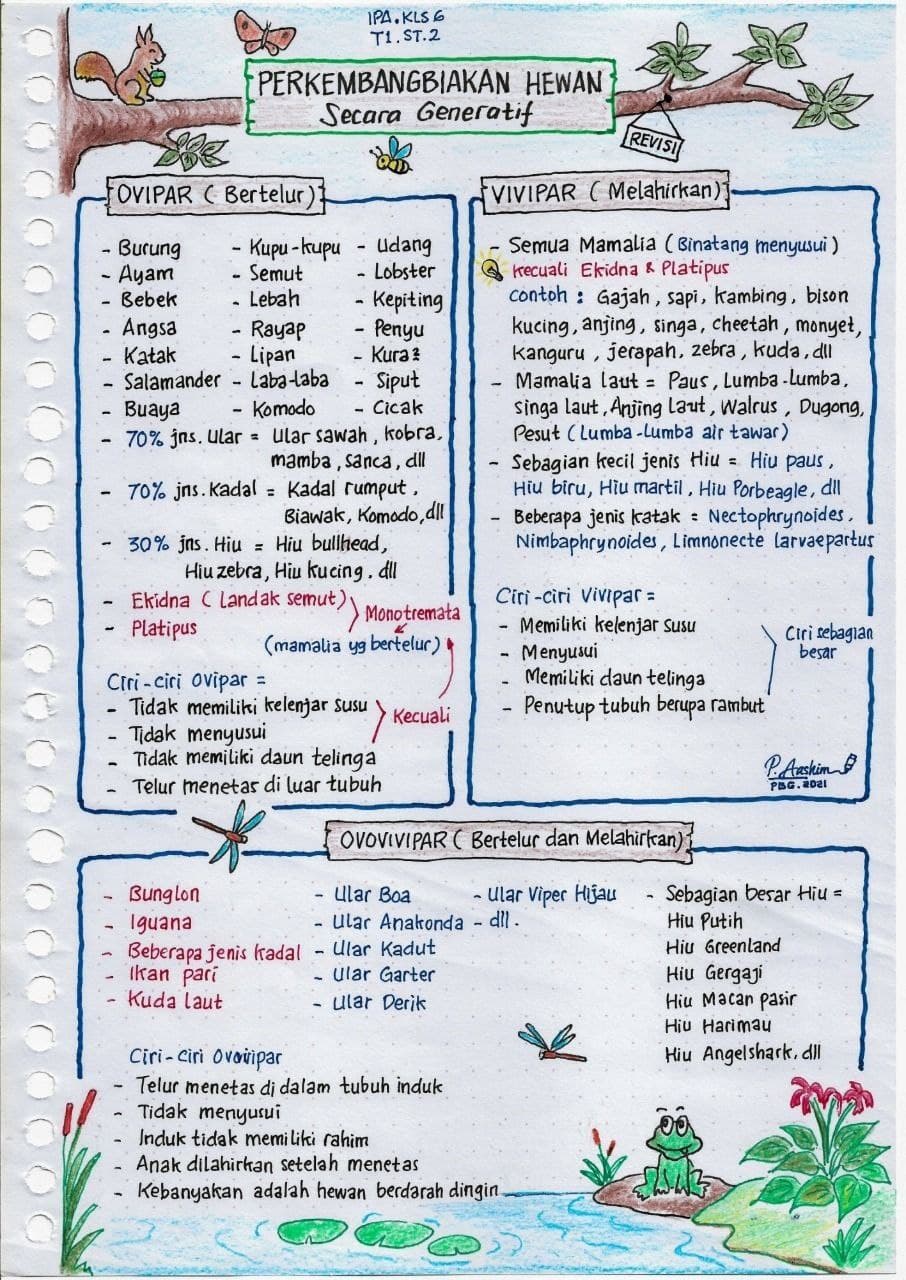 IPA.KLS 6
T1.ST.2
PERKEMBANGBIAKAN HEWAN
Secara Generatif
REVISI
OVIPAR ( Bertelur)
- Burung
- Ayam
- Bebek
- Angsa
- Katak
- Salamander
- Buaya
- Kupu-kupu
- Semut
- Lebah
- Rayap
- Lipan
- Laba-laba
- Komodo
- Udang
- Lobster
- Kepiting
- Penyu
- Kura2
- Siput
- Cicak
- 70% jns. Ular = Ular sawah, kobra,
mamba, sanca, dll
- 70% jns. Kadal = Kadal rumput,
Biawak, Komodo, dll
- 30% jns. Hiu = Hiu bullhead,
Hiu zebra, Hiu kucing. dll
- Ekidna ( Landak semut)
- Platipus
Monotremata
(mamalia yg bertelur)
Ciri-ciri Ovipar =
- Tidak memiliki kelenjar susu
- Tidak menyusui
Kecuali
- Tidak memiliki daun telinga
- Telur menetar di luar tubuh
VIVIPAR ( Melahirkan)
- Semua Mamalia ( Binatang menyusui )
kecuali Ekidna & Platipus
contoh : Gajah, sapi, kambing, bison
kucing, anjing, singa, cheetah, monyet,
Kanguru, jerapah, zebra, kuda, dll
- Mamalia laut = Paus, Lumba-Lumba,
Singa laut, Anjing Laut, Walrus, Dugong,
Pesut ( Lumba-Lumba air tawar)
- Sebagian kecil jenis Hiu = Hiu paus,
Hiu biru, Hiu martil, Hiu Porbeagle, dll
- Beberapa jenis katak = Nectophrynoides,
Nimbaphrynoides, Limnonecte larvaepartus
Ciri-ciri Vivipar =
- Memiliki kelenjar susu
- Menyusui
- Memiliki daun telinga
- Penutup tubuh berupa rambut
Ciri sebagian
besar
P. Aashim
PBG. 2021
OVOVIVIPAR ( Bertelur dan Melahirkan)
- Bunglon
- Iguana
- Beberapa jenis kadal
- Ikan pari
- Kuda laut
- Ular Boa
- Ular Anakonda
- Ular Kadut
- Ular Garter
- Ular Derik
- Ular Viper Hijau
- dll.
- Sebagian besar Hiu =
Hiu Putih
Hiu Greenland
Hiu Gergaji
Hiu Macan pasir
Hiu Harimau
Hiu Angelshark, dll
Ciri-ciri Ovovipar
- Telur menetas di dalam tubuh induk
- Tidak menyusui
- Induk tidak memiliki rahim
- Anak dilahirkan setelah menetas
- Kebanyakan adalah hewan berdarah dingin